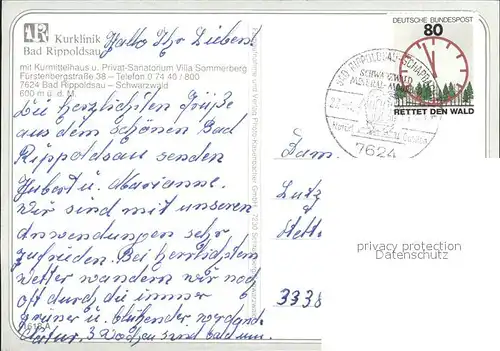 Kurklinik
Bad Rippoldsau
mit Kurmittelhaus u. Privat-Sanatorium Villa Sommerberg
Fürstenbergstraße 38 – Telefon 0 74 40 / 800
7624 Bad Rippoldsau – Schwarzwald
600 m ü. d. M.
Hallo Ihr Lieben!
Die herzlichsten Grüße
aus dem schönen Bad
Rippoldsau senden
Hubert u. Marianne.
Wir sind mit unseren
Anwendungen sehr
zufrieden. Bei herrlichstem
Wetter wandern wir noch
oft durch die immer
grüner u. blühender werdende
Natur. 3 Wochen sind bald um.
DEUTSCHE BUNDESPOST
80
RETTET DEN WALD
BAD RIPPOLDSAU-SCHAPBACH
SCHWARZWALD
7624
Fam.
Lutz
Stett
3338
privacy protection
Datenschutz